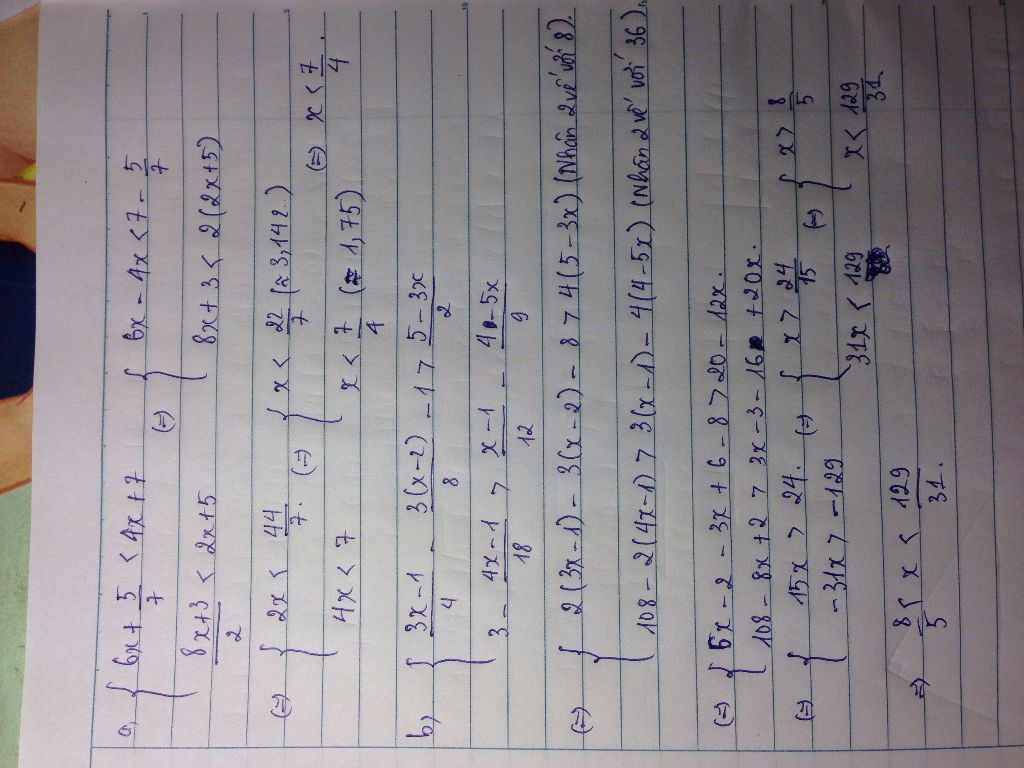 a, { 6x + 5/7 < 4x + 7 (=) { 6x - 4x < 7 - 5/7
(8x+3)/2 < 2x+5 8x + 3 < 2(2x+5)
(=) { 2x < 44/7. (=) { x < 22/7 (≈ 3,142..)
4x < 7 x < 7/4 (≈ 1,75) (=) x < 7/4.
b) { (3x-1)/4 - 3(x-2)/8 - 1 > (5-3x)/2
3 - (4x-1)/18 > (x-1)/12 - (4-5x)/9
(=) { 2(3x-1) - 3(x-2) - 8 > 4(5-3x) (Nhân 2 vế với 8).
108 - 2(4x-1) > 3(x-1) - 4(4-5x) (Nhân 2 vế với 36).
(=) { 6x - 2 - 3x + 6 - 8 > 20 - 12x.
108 - 8x + 2 > 3x - 3 - 16 + 20x.
(=) { 15x > 24. (=) { x > 24/15 (=) { x > 8/5
-31x > -129 31x < 129 x < 129/31
=) 8/5 < x < 129/31.